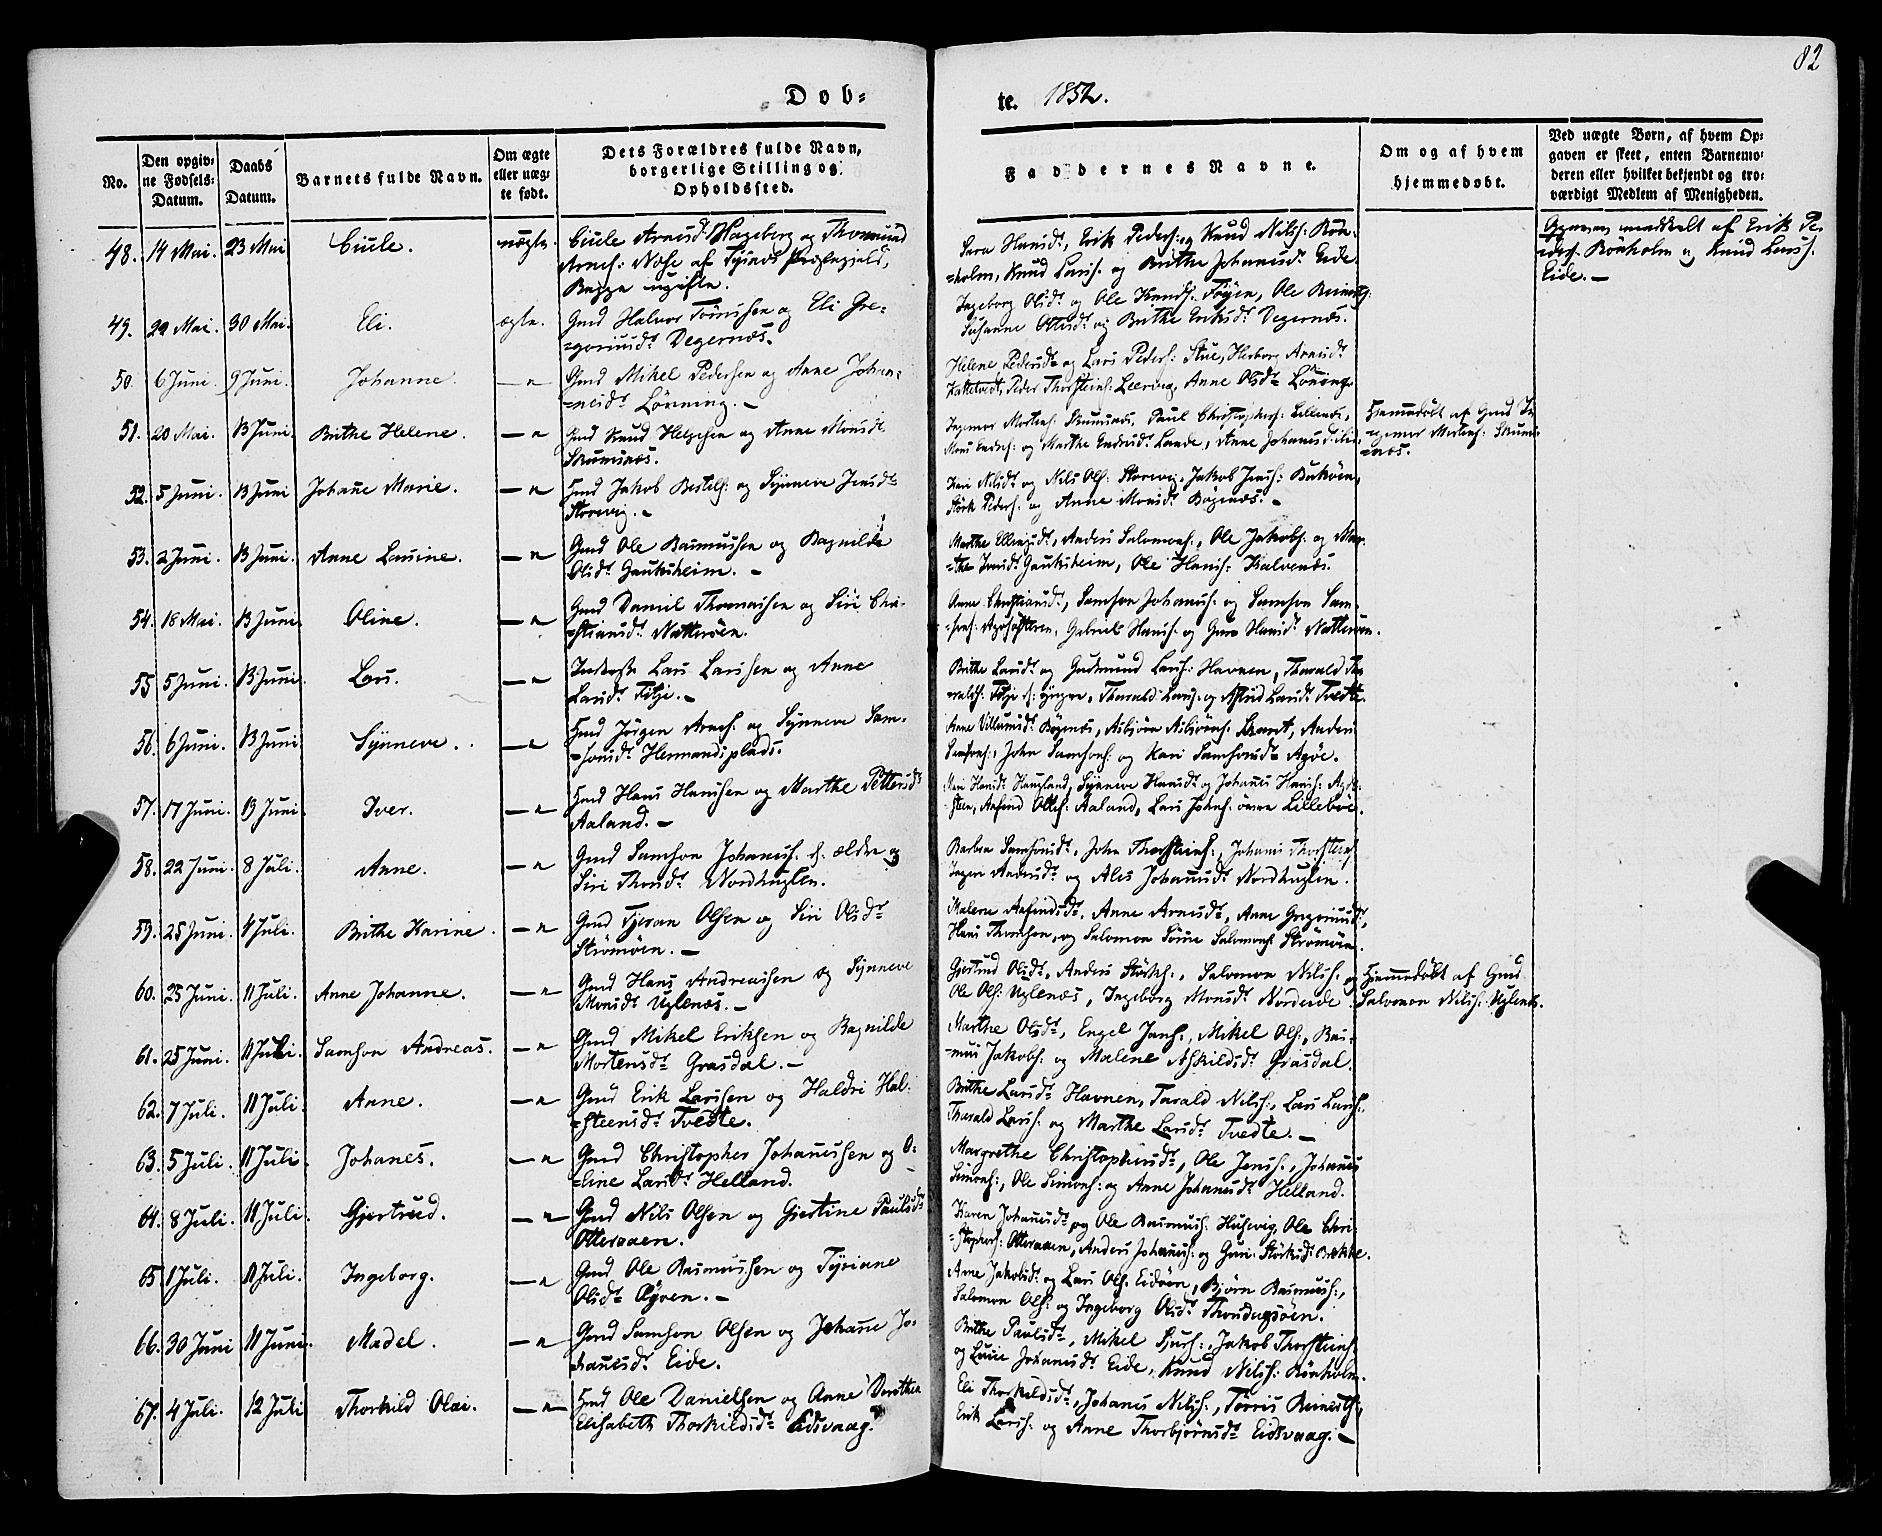 82
Døb-
te. 1852.
No.
Den opgiv-
ne Fødsels-
Datum.
Daabs
Datum.
Barnets fulde Navn.
Om ægte
eller uæg-
te født.
Dets Forældres fulde Navn,
borgerlige Stilling og
Opholdssted.
Faddernes Navne.
Om og af hvem
hjemmedøbt.
Ved uægte Børn, af hvem Op-
gaven er skeet, enten Barnemo-
deren eller hvilket bekjendt og tro-
værdigt Medlem af Menigheden.
48. 14 Mai. 23 Mai Cicile. uægte. Cicile Arnesdr Hageberg og Thormund
Arnes: Næse af Tysnæs Præstegjeld,
Begge ugifte.
Sara Hansdr, Erik Peders: og Knud Nils: Røn-
=holm, Knud Laris: og Brithe Johanisdr Eide
meddelt af Erik Pe-
ders: Rönholm og Knud Lars:
Eide. —
49. 29 Mai. 30 Mai. Eli. ægte. Gmd Halvor Tönnisen og Eli Gre-
=goriusdr Degernæs.
Ingeborg Olsdr og Ole Knuds: Föyen, Ole
Susanne Olsdr og Brithe Eriksdr Degernæs.
50. 6 Juni. 9 Juni. Johanne. — " Gmd Mikel Pedersen og Anne Johan-
=nesdr Lönning. —
Helene Pedersdr og Lars Peders: Stue, Herborg Arnesdr
Peder Thorsteins: Anne Olsdr Lönning.
51. 20 Mai. 13 Juni. Brithe Helene. — " Gmd Knud Helgesen og Anne Monsdr
Skumsnæs.
Ingemor Mortens: Skumsnæs, Paul Christophers:
og Marthe Endresdr Lande, Anne Johanisdr
Hjemmedøbt af Gmd In-
gemor Mortens: Skums-
=næs.
52. 5 Juni. 13 Juni Johane Marie. — " Hmd Jakob Bertels: og Synneve Jensdr
Storevig. —
Kari Nilsdr og Nils Ols: Storevig, Jakob Jens:
Störk Peders: og Anne Monsdr Bögenæs. —
53. 2 Juni. 13 Juni. Anne Laurine. — " Gmd Ole Rasmussen og Ragnilde
Olsdr Gauksheim. —
Marthe Ellingsdr, Anders Salomons:, Ole Jakobs: og Mar-
=the Gauksheim, Ole Hans: Kalvenæs.
54. 18 Mai. 13 Juni. Oline. — " Gmd Daniel Thomassen og Siri Chri-
=stiansdr Nattersöen.
Anne Christiansdr, Samson Johanis: og Samson Sam-
=sons: Gabriels Hans: og Guro Hansdr Nattersöen.
55 5 Juni. 13 Juni. Lars. — " Inderste Lars Larssen og Anne
Larsdr Fitje. —
Brithe Larsdr og Gudmund Lars: Havnen, Tharald Tha-
ralds: Fitje d: yngre, Tharald Lars: og Astrid Larsdr Tvedte.
56. 6 Juni. 13 Juni. Synneve. — " Hmd Jörgen Arnes: og Synneve Sam-
=sonsdr Hermandsplads.
Anne Villumsdr Bögenæs, Asbjörn Asbjörns: Anders
Samsons:, John Samsons: og Kari Samsonsdr Agöe.
57. 17 Juni. 19 Juni. Iver. — " Hmd Hans Hanssen og Marthe Pettersdr
Aaland. —
Hansdr Haugland, Synneve Hansdr og Johanes Hans:
Anfind Aaland, Lars Johns: övre Lilleböe.
58. 22 Juni. 8 Juli. Anne. — " Gmd Samson Johanis: d. ældre og
Siri Thorsdr Nordhuglen.
Barbra Samsonsdr, John Thorsteins:, Johanis Thorsteins:
Inger Andersdr og Ales Johanisdr Nordhuglen.
59. 25 Juni. 4 Juli. Brithe Karine. — " Gmd Tjeran Olsen og Siri Olsdr
Strömöen. —
Malene Anfindsdr, Anne Arnesdr, Anne Gregoriusdr,
Hans Thomsen, og Salomon Salomons: Strömöen.
60. 25 Juni. 11 Juli. Anne Johanne. — " Gmd Hans Andreassen og Synneve
Monsdr Uglenæs. —
Gjertrud Olsdr, Anders Störks:, Salomon Nils: og
Ole Ols: Uglenæs, Ingeborg Monsdr Nordeide
Hjemmedøbt af Gmd
Salomon Nils: Uglenæs.
61. 25 Juni. 11 Juli. Samson Andreas. — " Gmd Mikel Eriksen og Ragnilde
Mortensdr Grasdal. —
Marthe Olsdr, Engel Jans:, Mikel Ols:, Ras-
=mus Jakobs: og Malene Askildsdr Grasdal.
62. 7 Juli. 11 Juli. Anne. — " Gmd Erik Larssen og Haldri Hal-
=steensdr Tvedte.
Brithe Larsdr Havnen, Tarald Nils:, Lars Lars:,
Tharald Lars: og Marthe Larsdr Tvedte. —
63. 5 Juli. 11 Juli. Johanes. — " Gmd Christopher Johanessen og O-
=line Larsdr Helland.
Margrethe Christophersdr, Ole Jens:, Johanes
Simons:, Ole Simons: og Anne Johanisdr Helland.
64. 8 Juli. 11 Juli. Gjertrud. — " Gmd Nils Olsen og Gjertine Paulsdr
Otteraaen.
Karen Johanisdr og Ole Rasmus: Husevig, Ole Chri-
=stophers: Otteraaen, Anders Johanis: og Guri Störksdr Brekke.
65 1 Juli. 11 Juli. Ingeborg. — " Gmd Ole Rasmussen og Tyriane
Olsdr Röyven. —
Anne Jakobsdr og Lars Ols: Eidöen, Björn Rasmus:,
Salomon Ols: og Ingeborg Olsdr
66. 30 Juni 11 Juni. Madel. — " Gmd Samson Olsen og Johane Jo-
hanesdr Eide.
Brithe Paulsdr, Mikel Sjurs:, Jakob Thorsteins:
og Lucie Johanisdr Eide, Knud Nils: Rönholm.
67. 4 Juli. 12 Juli Thorkild Olai. — " Hmd Ole Danielsen og Anne Dorothea
Elisabeth Thorkildsdr Eidsvaag.
Eli Thorkildsdr, Johanis Nils:, Törris Reinerts:,
Erik Lars: og Anne Thorbjörnsdr Eidsvaag. —